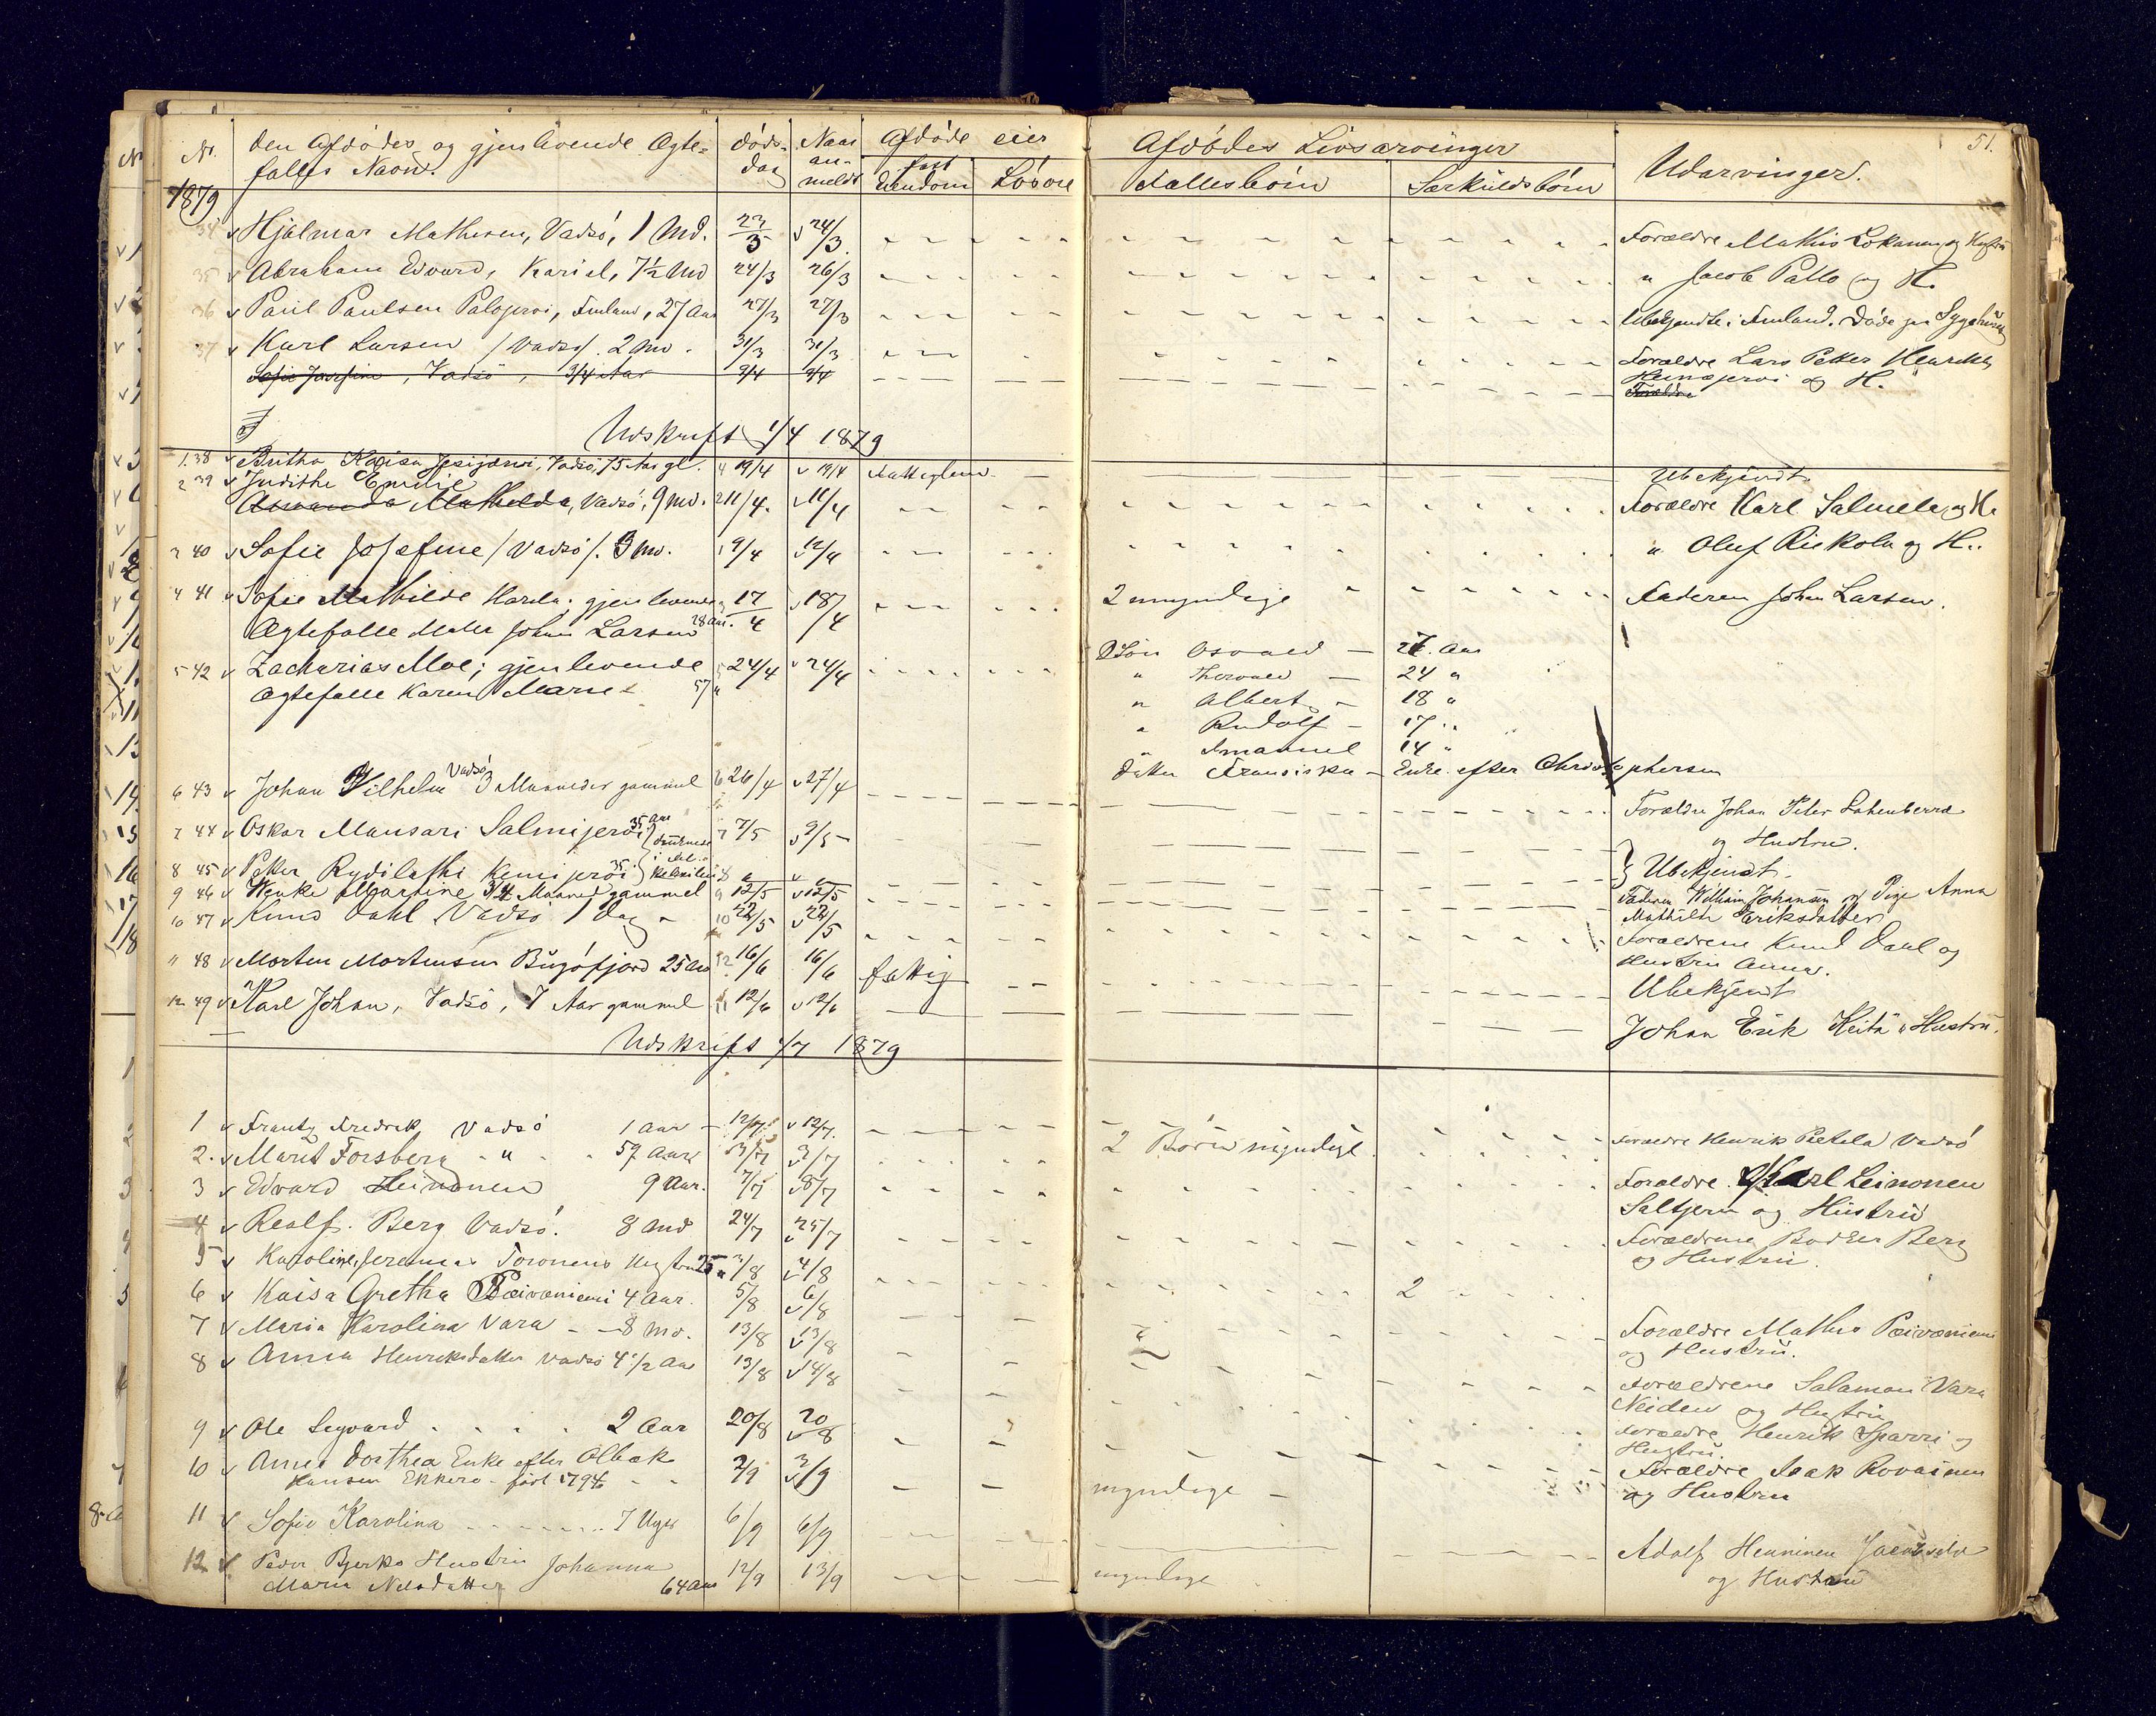 Nr. den Afdødes og gjenlevende Ægte- døds- Naar Afdøde eier Afdødes Livsarvinger Udarvinger. 51.
fælles Navn. dag an- meldt fast Eiendom Løsøre Fællesbørn Særkuldsbørn
1879
34 Hjalmar Mathisen, Vadsø, 1 Md. 23/3 24/3 Forældre Mathis Lokanen og Hustru
35 Abraham Edvard, Kariel, 7½ Md 24/3 26/3 " Jacob Pallo og H.
36 Paul Paulsen Palojervi, Finland, 27 Aar 27/3 27/3 Ubekjendte i Finland. Døde paa Sygehuset
37 Karl Larsen /Vadsø/. 2 Md. 31/3 31/3 Forældre Lars Petter Henriksen
Heinæjervi og H.
Sofie Josefine, Vadsø, 3/4 Aar 9/4 9/4 Forældre
Udskrift 1/4 1879
1. 38 Britha Kaisa Jesijærvi, Vadsø, 75 Aar gl. 19/4 19/4 Fattiglem Ubekjendt
2 39 Judithe Emilie
Amanda Mathilda, Vadsø, 9 Md. 11/4. 11/4 Forældre Karl Salmela og H.
3 40 Sofie Josefine /Vadsø/. 3 Md. 9/4 12/4 " Oluf Riekola og H.
4 41 Sofie Mathilde Karela; gjenlevende 17/4 18/4 2 umyndige Faderen Johan Larsen.
Ægtefælle Maler Johan Larsen 28 Aar.
5 42 Zacharias Moe; gjenlevende 24/4 24/4 Søn Osvald — 27. Aar
Ægtefælle Karen Marie 57 " " Thorvald — 24 "
" Albert — 18 "
" Rudolf — 17 "
" Emanuel 14 "
Datter Fransiska — Enke efter Christophersen
6 43 Johan Vilhelm Vadsø 3 Maaneder gammel 26/4 27/4 Forældre Johan Peter Lahenberra
og Hustru.
7 44 Oskar Mansari Salmijervi 35 Aar 7/5 9/5 Ubekjendt.
8 45 Peter Rydilathi Kemijervi 35. " "
9 46 Henke Martine 3/4 Maaned gammel 12/5 12/5 Faderen William Johansen og Pige Anna
Mathilde Eriksdatter
10 47 Knud Dahl Vadsø 1 Dag 22/5 22/5 Forældrene Knud Dahl og
Hustru Anna.
11 48 Morten Mortensen Bugøfjord 25 Aar 16/6 16/6 fattig Ubekjendt
12 49 Karl Johan, Vadsø, 7 Aar gammel 12/6 12/6 Johan Erik Keitä " Hustru.
Udskrift 1/7 1879
1 Frantz Fredrik Vadsø 1 Aar 12/7 12/7. Forældre Henrik Pietela Vadsø
2. Marit Forsberg " 59 Aar 3/7 3/7 2 Børn myndige
3 Edvard Leinonen 9 Aar. 7/7 8/7 Forældre Karl Leinonen
Saltjern og Hustru
4 Realf. Berg Vadsø. 8 Md 24/7 25/7 Forældrene Bodter Berg
og Hustru.
5 Karoline, Jeremias Toronens Hustru 25 " 3/8 4/8 2
6 Kaisa Gretha Pæivæniemi 4 Aar. 5/8 6/8 Forældre Mathis Pæivæniemi
og Hustru.
7 Maria Karolina Vara — 8 Md. 13/8 13/8 Forældrene Salamon Vara
Neiden og Hustru
8 Anna Henriksdatter Vadsø 4 1/2 Aar 13/8 14/8 Forældre Henrik Sparri og
Hustru.
9 Ole Segvard 2 Aar 20/8 20/8 Forældre Isak Rovainen
og Hustru
10 Anna Dorthea Enke efter Olbak 2/9 3/9 myndige
Hansen Ekkerø — født 1794
11 Sofie Karolina 7 Uger 6/9 6/9 Adolf Henninen Jacobselv
og Hustru
12 Peder Bjerks Hustru Johanna 12/9 13/9 myndige
Maria Nelsdatter 64 Aar